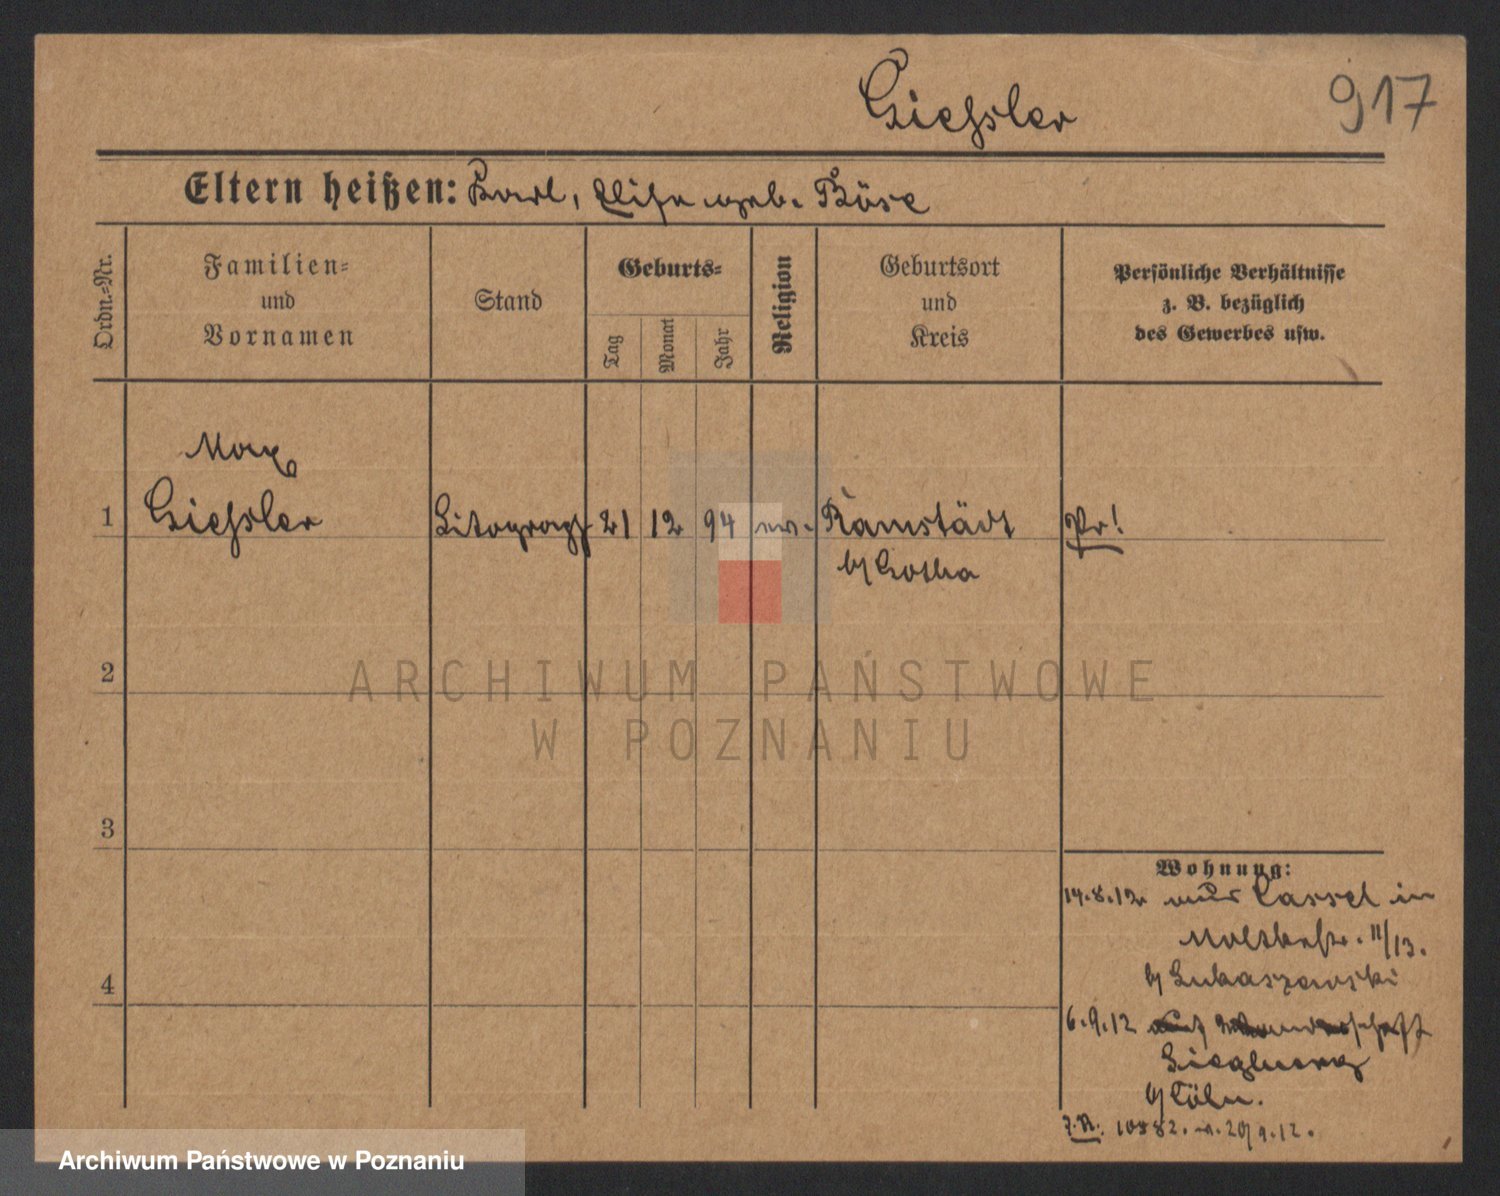 Giessler
917
Eltern heißen: Karl, Elise geb. Böse
Ordn.-Nr.
Familien-
und
Vornamen
Stand
Geburts-
Tag
Monat
Jahr
Religion
Geburtsort
und
Kreis
Persönliche Verhältnisse
z. B. bezüglich
des Gewerbes usw.
Max
1 Giessler Litograph 21 12 94 ev. Remstädt Pr!
b/ Gotha
2
3
4
ARCHIWUM PAŃSTWOWE
W POZNANIU
Wohnung:
14.8.12 aus Cassel in
Moltkestr. 11/13.
b/ Lukaszewski
6.9.12 auf Wanderschaft
Siegburg
b/ Cöln.
J.N. 10882. v. 20/9.12.
Archiwum Państwowe w Poznaniu